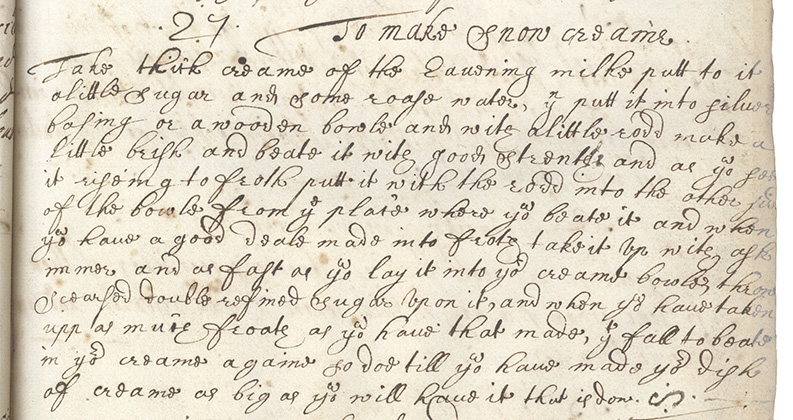 27. To make Snow creame.
Take thick creame of the Eavening milke putt to it
alittle Sugar and some roase water, yn putt it into silver
basing or a wooden bowle and with alittle rodd make a
little brish and beate it with good strenth and as yo see
it riseing to froth putt it with the rodd into the other side
of the bowle from ye place where yo beate it and when
yo have a good deale made into froth take it up with ask
immer and as fast as yo lay it into yor creame bowle, throw
scearsed double refined sugar upon it, and when yo have taken
upp as much froath as yo have that made, yn fall to beate
in yor creame againe so doe till yo have made yor dish
of creame as big as yo will have it that is don.